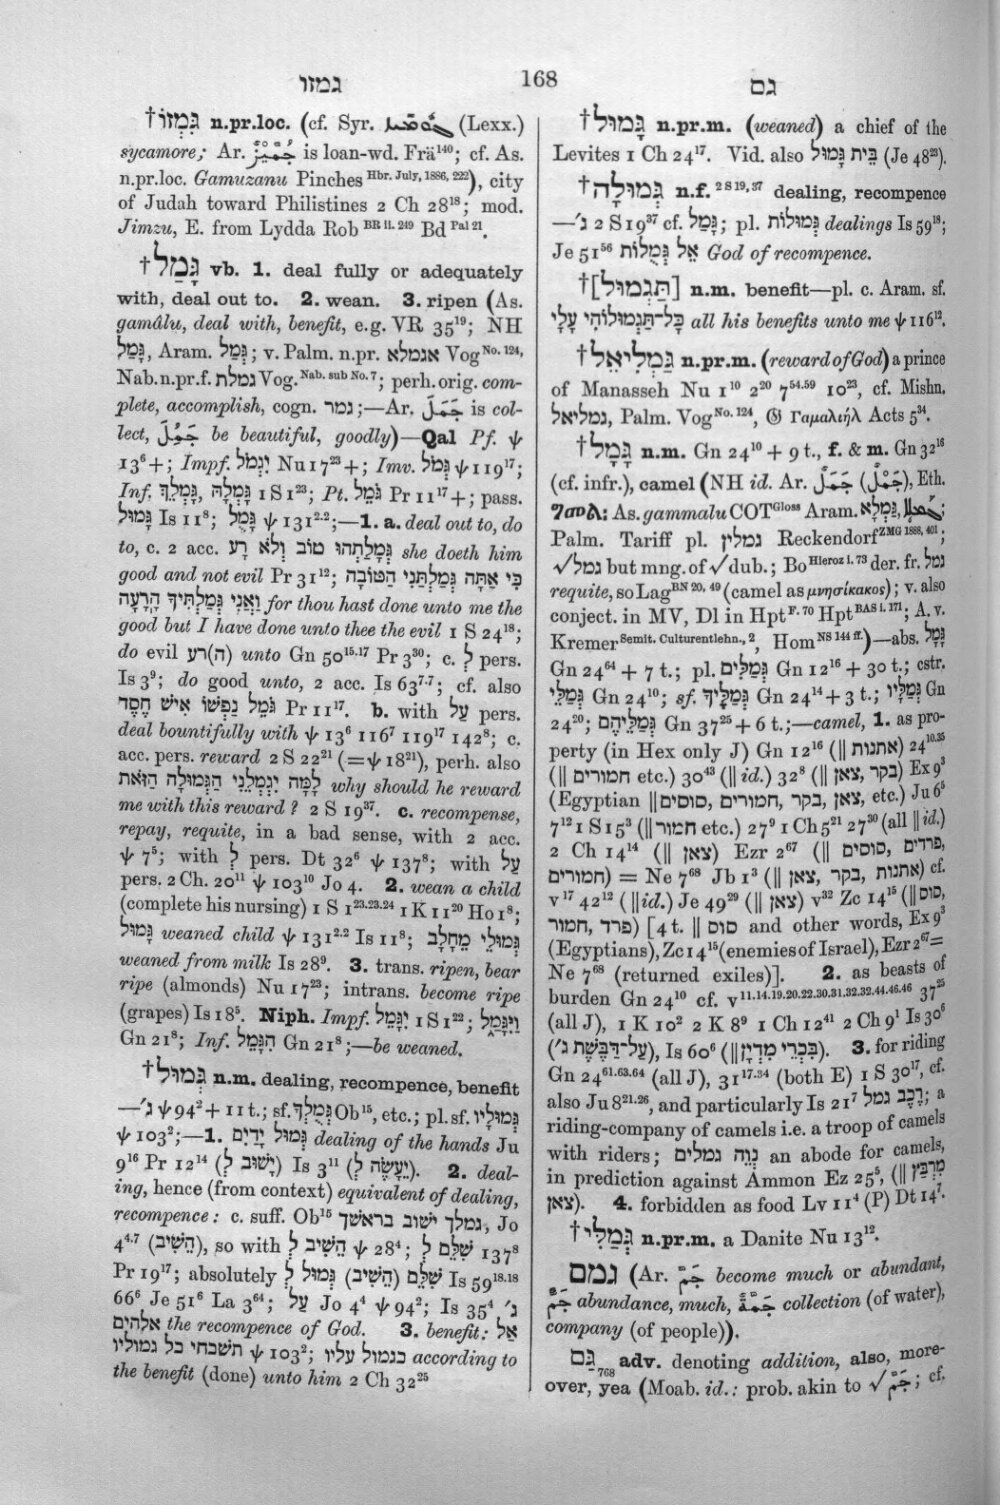 גמזו
168
גם
†גִּמְזוֹ n.pr.loc. (cf. Syr. (Lexx.)
sycamore; Ar. جُمَّيْزٌ is loan-wd. Frä¹⁴⁰; cf. As.
n.pr.loc. Gamuzanu Pinches Hbr. July, 1886, 222), city
of Judah toward Philistines 2 Ch 28¹⁸; mod.
Jimzu, E. from Lydda Rob BR ii. 249 Bd Pal 21.
†גָּמַל vb. 1. deal fully or adequately
with, deal out to. 2. wean. 3. ripen (As.
gamâlu, deal with, benefit, e.g. VR 35¹⁹; NH
גָּמַל, Aram. גְּמַל; v. Palm. n.pr. אגמלא Vog No. 124,
Nab. n.pr.f. גמלת Vog. Nab. sub No. 7; perh. orig. com-
plete, accomplish, cogn. גמר;—Ar. جَمَلَ is col-
lect, جَمُلَ be beautiful, goodly)—Qal Pf. ψ
13⁶+; Impf. יִגְמֹל Nu 17²³+; Imv. גְּמֹל ψ 119¹⁷;
Inf. גָּמְלָהּ, גָּמְלֵךְ 1 S 1²³; Pt. גֹּמֵל Pr 11¹⁷+; pass.
גָּמוּל Is 11⁸; גָּמֻל ψ 131²·²;—1. a. deal out to, do
to, c. 2 acc. גְּמָלַתְהוּ טוֹב וְלֹא רָע she doeth him
good and not evil Pr 31¹²; כִּי אַתָּה גְּמַלְתַּנִי הַטּוֹבָה
וַאֲנִי גְּמַלְתִּיךָ הָרָעָה for thou hast done unto me the
good but I have done unto thee the evil 1 S 24¹⁸;
do evil (ה)רע unto Gn 50¹⁵·¹⁷ Pr 3³⁰; c. לְ pers.
Is 3⁹; do good unto, 2 acc. Is 63⁷·⁷; cf. also
גֹּמֵל נַפְשׁוֹ אִישׁ חָסֶד Pr 11¹⁷. b. with עַל pers.
deal bountifully with ψ 13⁶ 116⁷ 119¹⁷ 142⁸; c.
acc. pers. reward 2 S 22²¹ (=ψ 18²¹), perh. also
לָמָּה יִגְמְלֵנִי הַגְּמוּלָה הַזֹּאת why should he reward
me with this reward? 2 S 19³⁷. c. recompense,
repay, requite, in a bad sense, with 2 acc.
ψ 7⁵; with לְ pers. Dt 32⁶ ψ 137⁸; with עַל
pers. 2 Ch. 20¹¹ ψ 103¹⁰ Jo 4. 2. wean a child
(complete his nursing) 1 S 1²³·²³·²⁴ 1 K 11²⁰ Ho 1⁸;
גָּמוּל weaned child ψ 131²·² Is 11⁸; גְּמוּלֵי מֵחָלָב
weaned from milk Is 28⁹. 3. trans. ripen, bear
ripe (almonds) Nu 17²³; intrans. become ripe
(grapes) Is 18⁵. Niph. Impf. יִגָּמֵל 1 S 1²²; וַיִּגָּמַל
Gn 21⁸; Inf. הִגָּמֵל Gn 21⁸;—be weaned.
†גְּמוּל n.m. dealing, recompence, benefit
—ג׳ ψ 94²+11 t.; sf. גְּמֻלְךָ Ob¹⁵, etc.; pl. sf. גְּמוּלָיו
ψ 103²;—1. גְּמוּל יָדַיִם dealing of the hands Ju
9¹⁶ Pr 12¹⁴ (יָשׁוּב לְ) Is 3¹¹ (יֵעָשֶׂה לְ). 2. deal-
ing, hence (from context) equivalent of dealing,
recompence: c. suff. Ob¹⁵ גמלך ישוב בראשך, Jo
4⁴·⁷ (הֵשִׁיב), so with הֵשִׁיב לְ ψ 28⁴; שִׁלֵּם לְ 137⁸
Pr 19¹⁷; absolutely שִׁלֵּם (הֵשִׁיב) גְּמוּל לְ Is 59¹⁸·¹⁸
66⁶ Je 51⁶ La 3⁶⁴; עַל Jo 4⁴ ψ 94²; Is 35⁴ ג׳
אלהים the recompence of God. 3. benefit: אַל
תשכחי כל גמוליו ψ 103²; כגמול עליו according to
the benefit (done) unto him 2 Ch 32²⁵
†גָּמוּל n.pr.m. (weaned) a chief of the
Levites 1 Ch 24¹⁷. Vid. also בֵּית גָּמוּל (Je 48²³).
†גְּמוּלָה n.f. 2 S 19, 37 dealing, recompence
—ג׳ 2 S 19³⁷ cf. גָּמַל; pl. גְּמוּלוֹת dealings Is 59¹⁸;
Je 51⁵⁶ אֵל גְּמֻלוֹת God of recompence.
†[תַּגְמוּל] n.m. benefit—pl. c. Aram. sf.
כָּל־תַּגְמוּלוֹהִי עָלָי all his benefits unto me ψ 116¹².
†גַּמְלִיאֵל n.pr.m. (reward of God) a prince
of Manasseh Nu 1¹⁰ 2²⁰ 7⁵⁴·⁵⁹ 10²³, cf. Mishn.
גמליאל, Palm. Vog No. 124, 𝔊 Γαμαλιήλ Acts 5³⁴.
†גָּמָל n.m. Gn 24¹⁰ + 9 t., f. & m. Gn 32¹⁶
(cf. infr.), camel (NH id. Ar. جَمَلٌ (جَمْلٌ), Eth.
ገመል: As. gammalu COT Gloss Aram. גַּמְלָא,;
Palm. Tariff pl. גמלין Reckendorf ZMG 1888, 401;
√גמל but mng. of √ dub.; Bo Hieroz i. 73 der. fr. גמל
requite, so Lag BN 20, 49 (camel as μνησίκακος); v. also
conject. in MV, Dl in Hpt F. 70 Hpt BAS i. 171; A. v.
Kremer Semit. Culturentlehn., 2, Hom NS 144 ff.)—abs. גָּמָל
Gn 24⁶⁴ + 7 t.; pl. גְּמַלִּים Gn 12¹⁶ + 30 t.; cstr.
גְּמַלֵּי Gn 24¹⁰; sf. גְּמַלֶּיךָ Gn 24¹⁴+3 t.; גְּמַלָּיו Gn
24²⁰; גְּמַלֵּיהֶם Gn 37²⁵ + 6 t.;—camel, 1. as pro-
perty (in Hex only J) Gn 12¹⁶ (|| אתנות) 24¹⁰·³⁵
(|| חמורים etc.) 30⁴³ (|| id.) 32⁸ (|| צאן, בקר) Ex 9³
(Egyptian || סוסים, חמורים, בקר, צאן, etc.) Ju 6⁵
7¹² 1 S 15³ (|| חמור etc.) 27⁹ 1 Ch 5²¹ 27³⁰ (all || id.)
2 Ch 14¹⁴ (|| צאן) Ezr 2⁶⁷ (|| סוסים, פרדים,
חמורים) = Ne 7⁶⁸ Jb 1³ (|| צאן, בקר, אתנות) cf.
v¹⁷ 42¹² (|| id.) Je 49²⁹ (|| צאן) v³² Zc 14¹⁵ (|| סוס,
פרד, חמור) [4 t. || סוס and other words, Ex 9³
(Egyptians), Zc 14¹⁵ (enemies of Israel), Ezr 2⁶⁷=
Ne 7⁶⁸ (returned exiles)]. 2. as beasts of
burden Gn 24¹⁰ cf. v¹¹·¹⁴·¹⁹·²⁰·²²·³⁰·³¹·³²·³²·⁴⁴·⁴⁶·⁴⁶ 37²⁵
(all J), 1 K 10² 2 K 8⁹ 1 Ch 12⁴¹ 2 Ch 9¹ Is 30⁶
(עַל־דַּבֶּשֶׁת ג׳), Is 60⁶ (|| בִּכְרֵי מִדְיָן). 3. for riding
Gn 24⁶¹·⁶³·⁶⁴ (all J), 31¹⁷·³⁴ (both E) 1 S 30¹⁷, cf.
also Ju 8²¹·²⁶, and particularly Is 21⁷ רֶכֶב גמל; a
riding-company of camels i.e. a troop of camels
with riders; נְוֵה גמלים an abode for camels,
in prediction against Ammon Ez 25⁵, (|| מִרְבַּץ
צאן). 4. forbidden as food Lv 11⁴ (P) Dt 14⁷.
†גְּמַלִּי n.pr.m. a Danite Nu 13¹².
גמם (Ar. جَمَّ become much or abundant,
جَمٌّ abundance, much, جَمَّةٌ collection (of water),
company (of people)).
גַּם 768 adv. denoting addition, also, more-
over, yea (Moab. id.: prob. akin to √ جَمَّ; cf.